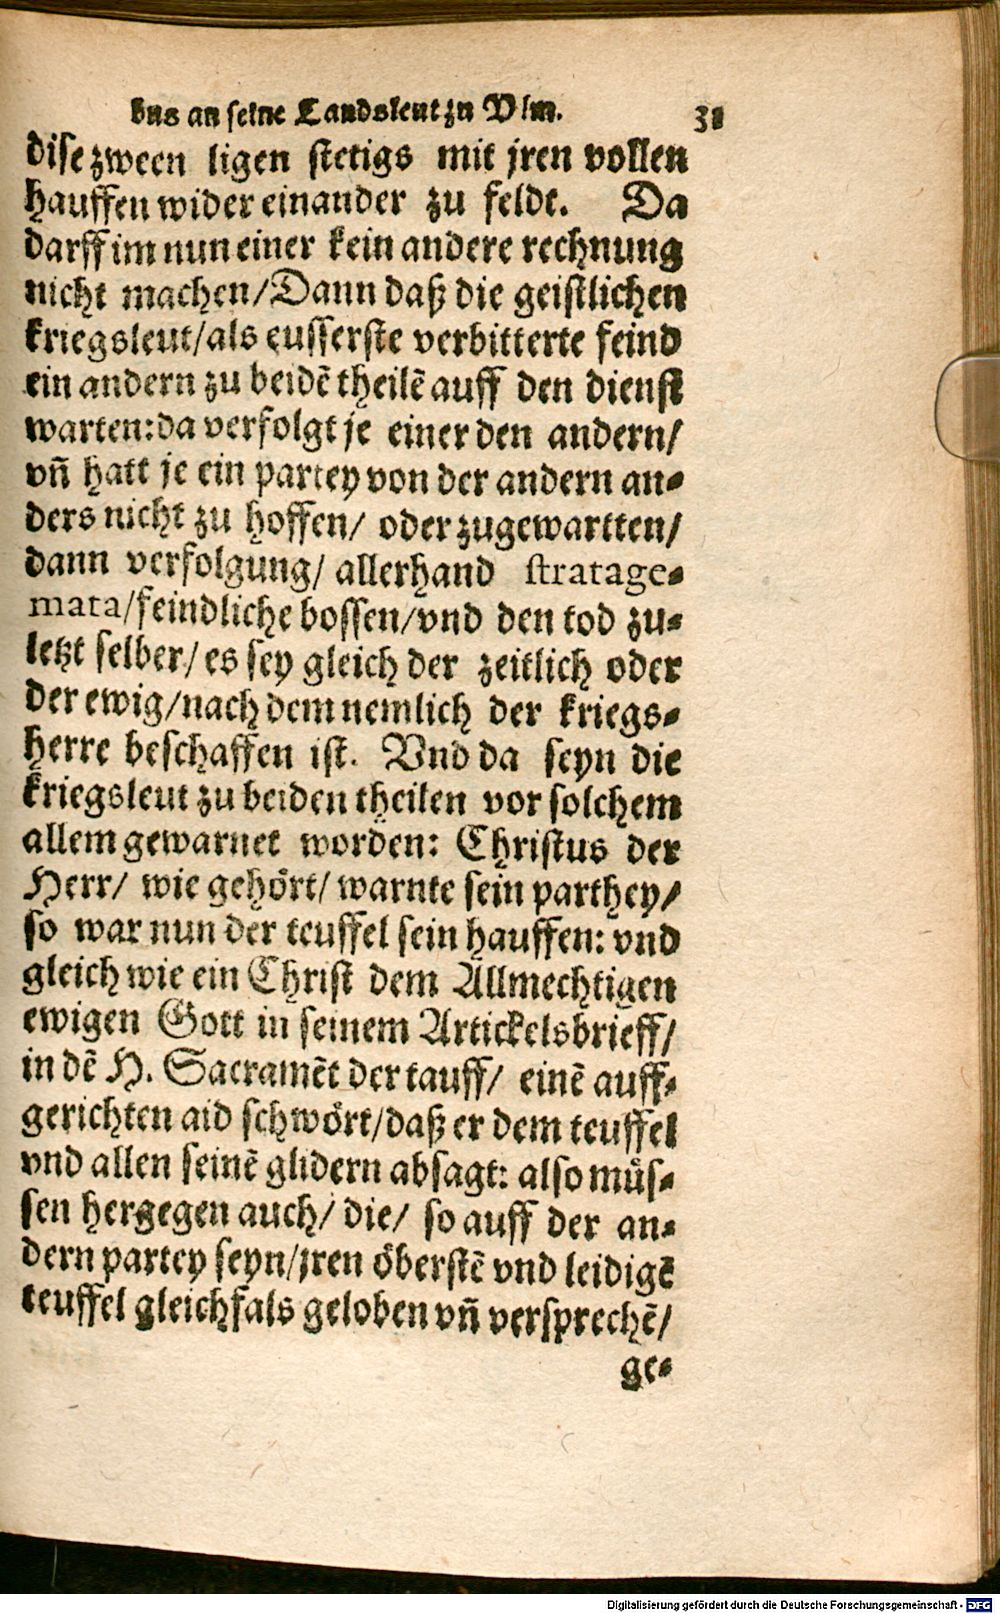 bus an seine Landsleut zu Vlm. 31
dise zween ligen stetigs mit jren vollen
hauffen wider einander zu feldt. Da
darff im nun einer kein andere rechnung
nicht machen/Dann daß die geistlichen
kriegsleut/als eusserste verbitterte feind
ein andern zu beidē theilē auff den dienst
warten:da verfolgt je einer den andern/
vñ hatt je ein partey von der andern an-
ders nicht zu hoffen/ oder zugewartten/
dann verfolgung/ allerhand stratage-
mata/feindliche bossen/vnd den tod zu-
letzt selber/ es sey gleich der zeitlich oder
der ewig/nach dem nemlich der kriegs-
herre beschaffen ist. Vnd da seyn die
kriegsleut zu beiden theilen vor solchem
allem gewarnet worden: Christus der
Herr/ wie gehört/ warnte sein parthey/
so war nun der teuffel sein hauffen: vnd
gleich wie ein Christ dem Allmechtigen
ewigen Gott in seinem Artickelsbrieff/
in dē H. Sacramēt der tauff/ einē auff-
gerichten aid schwört/daß er dem teuffel
vnd allen seinē glidern absagt: also müs-
sen hergegen auch/ die/ so auff der an-
dern partey seyn/jren öberstē vnd leidigē
teuffel gleichfals geloben vñ versprechē/
ge-
Digitalisierung gefördert durch die Deutsche Forschungsgemeinschaft - DFG